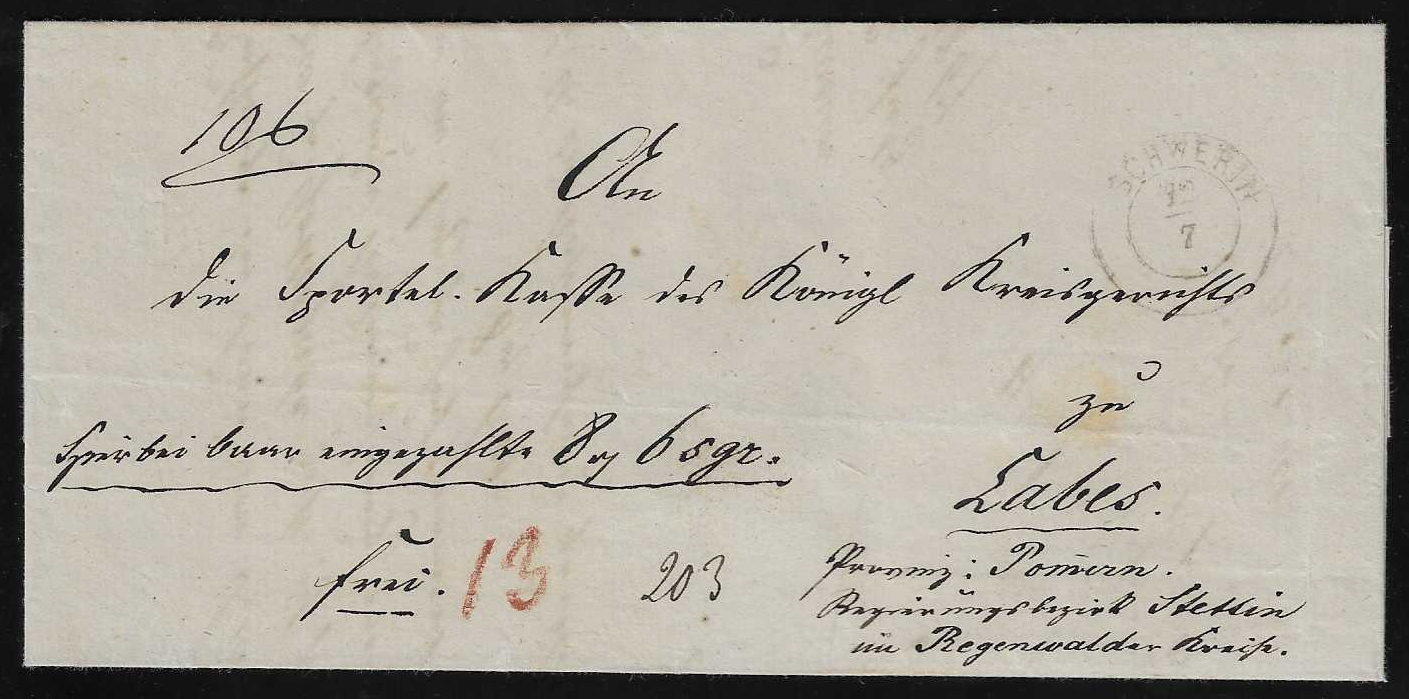 106
SCHWERIN
7
An
die Sportel-Kasse des Königl Kreisgerichts
zu
Hierbei baar eingezahlte 8 rg 6 sgr.
Labes.
frei. 13
203
Provinz: Pom̄ern.
Regierungsbezirk Stettin
im Regenwalder Kreise.